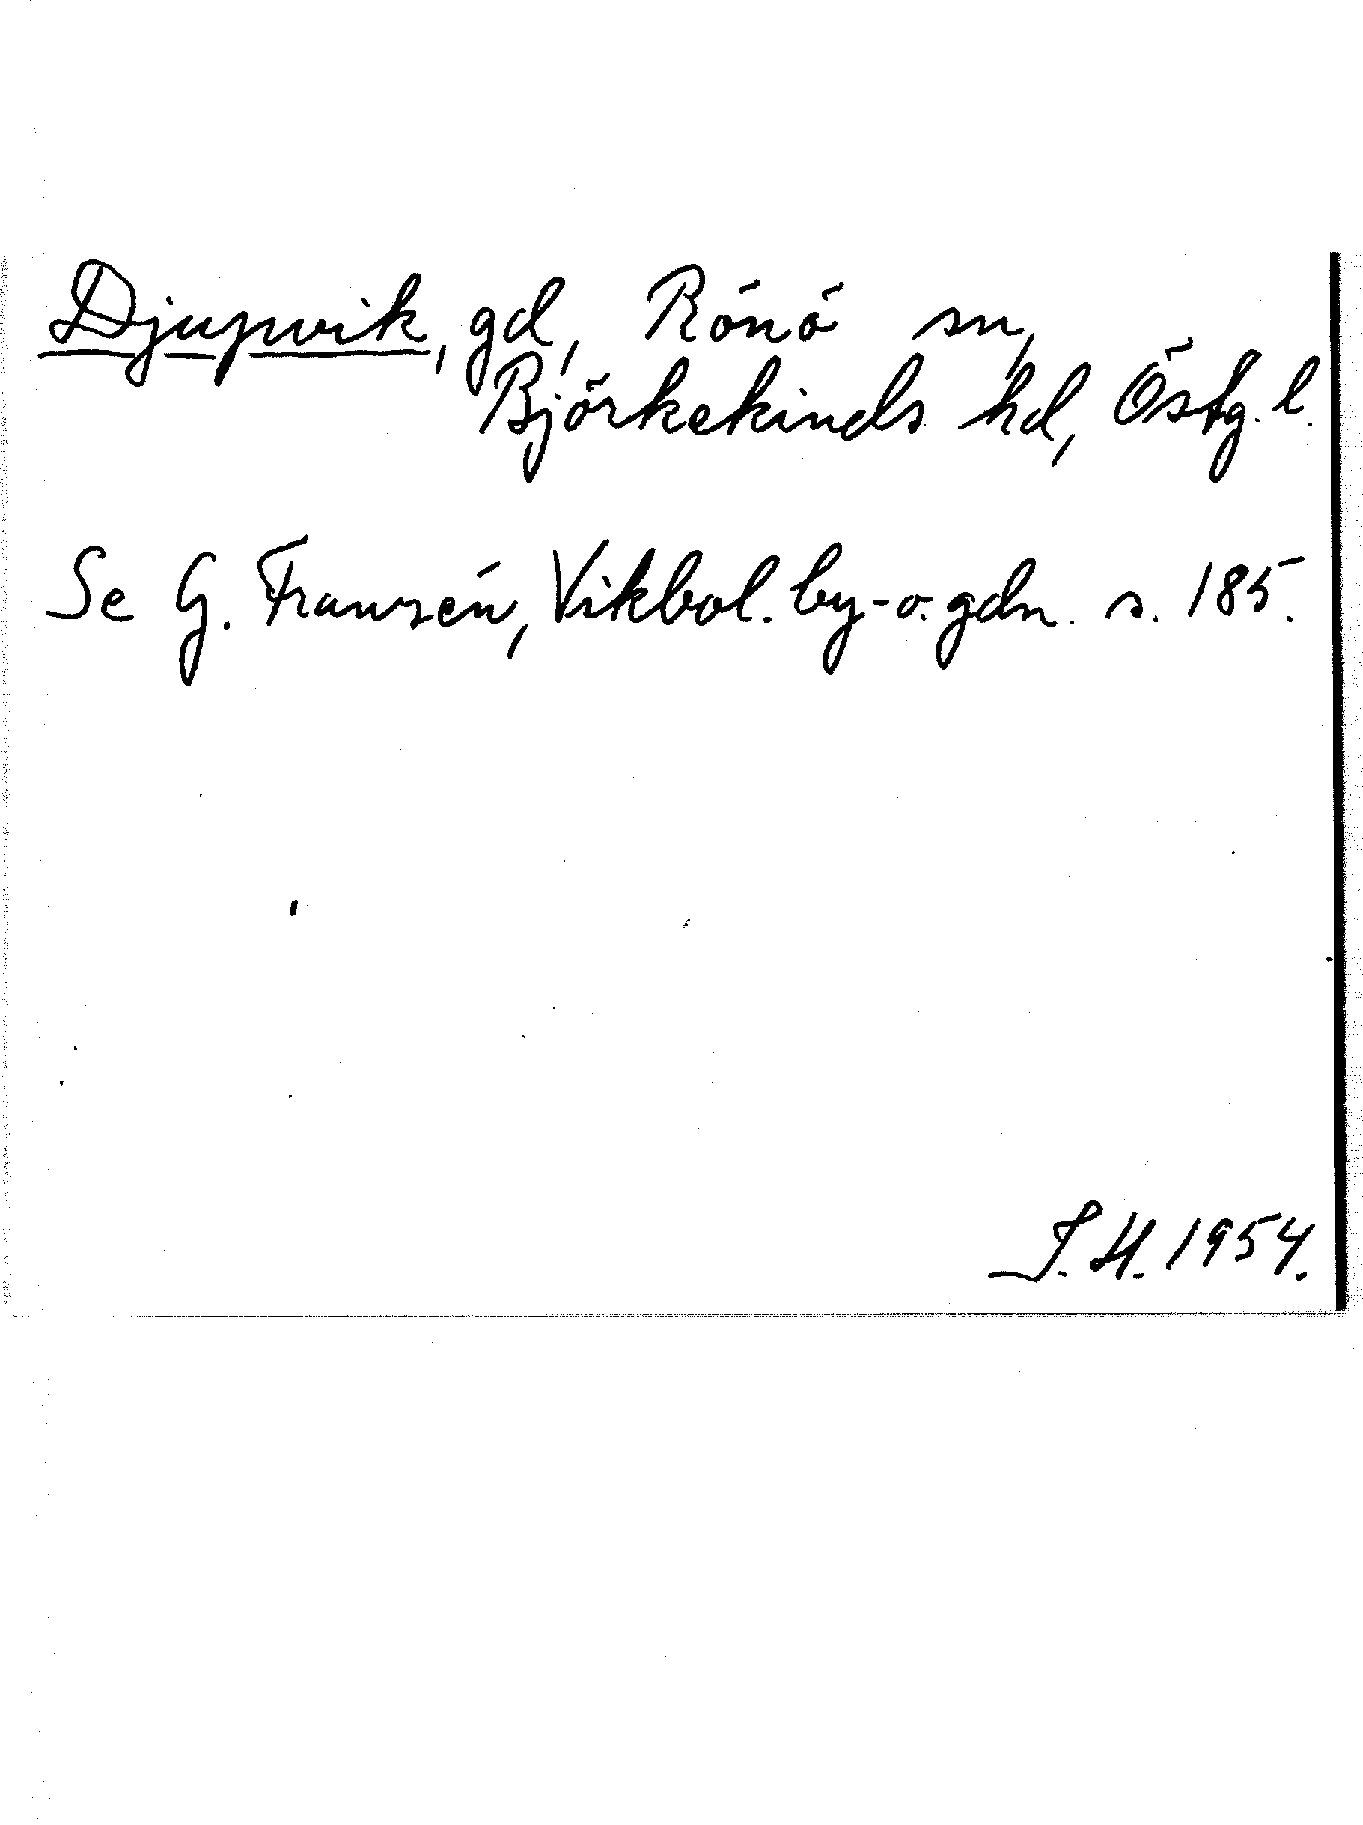 Djupvik, gd, Rönö sn,
Björkekinds hd, Östg. l.
Se G. Franzén, Vikbol. by- o. gdn. s. 185.
S. H. 1954.